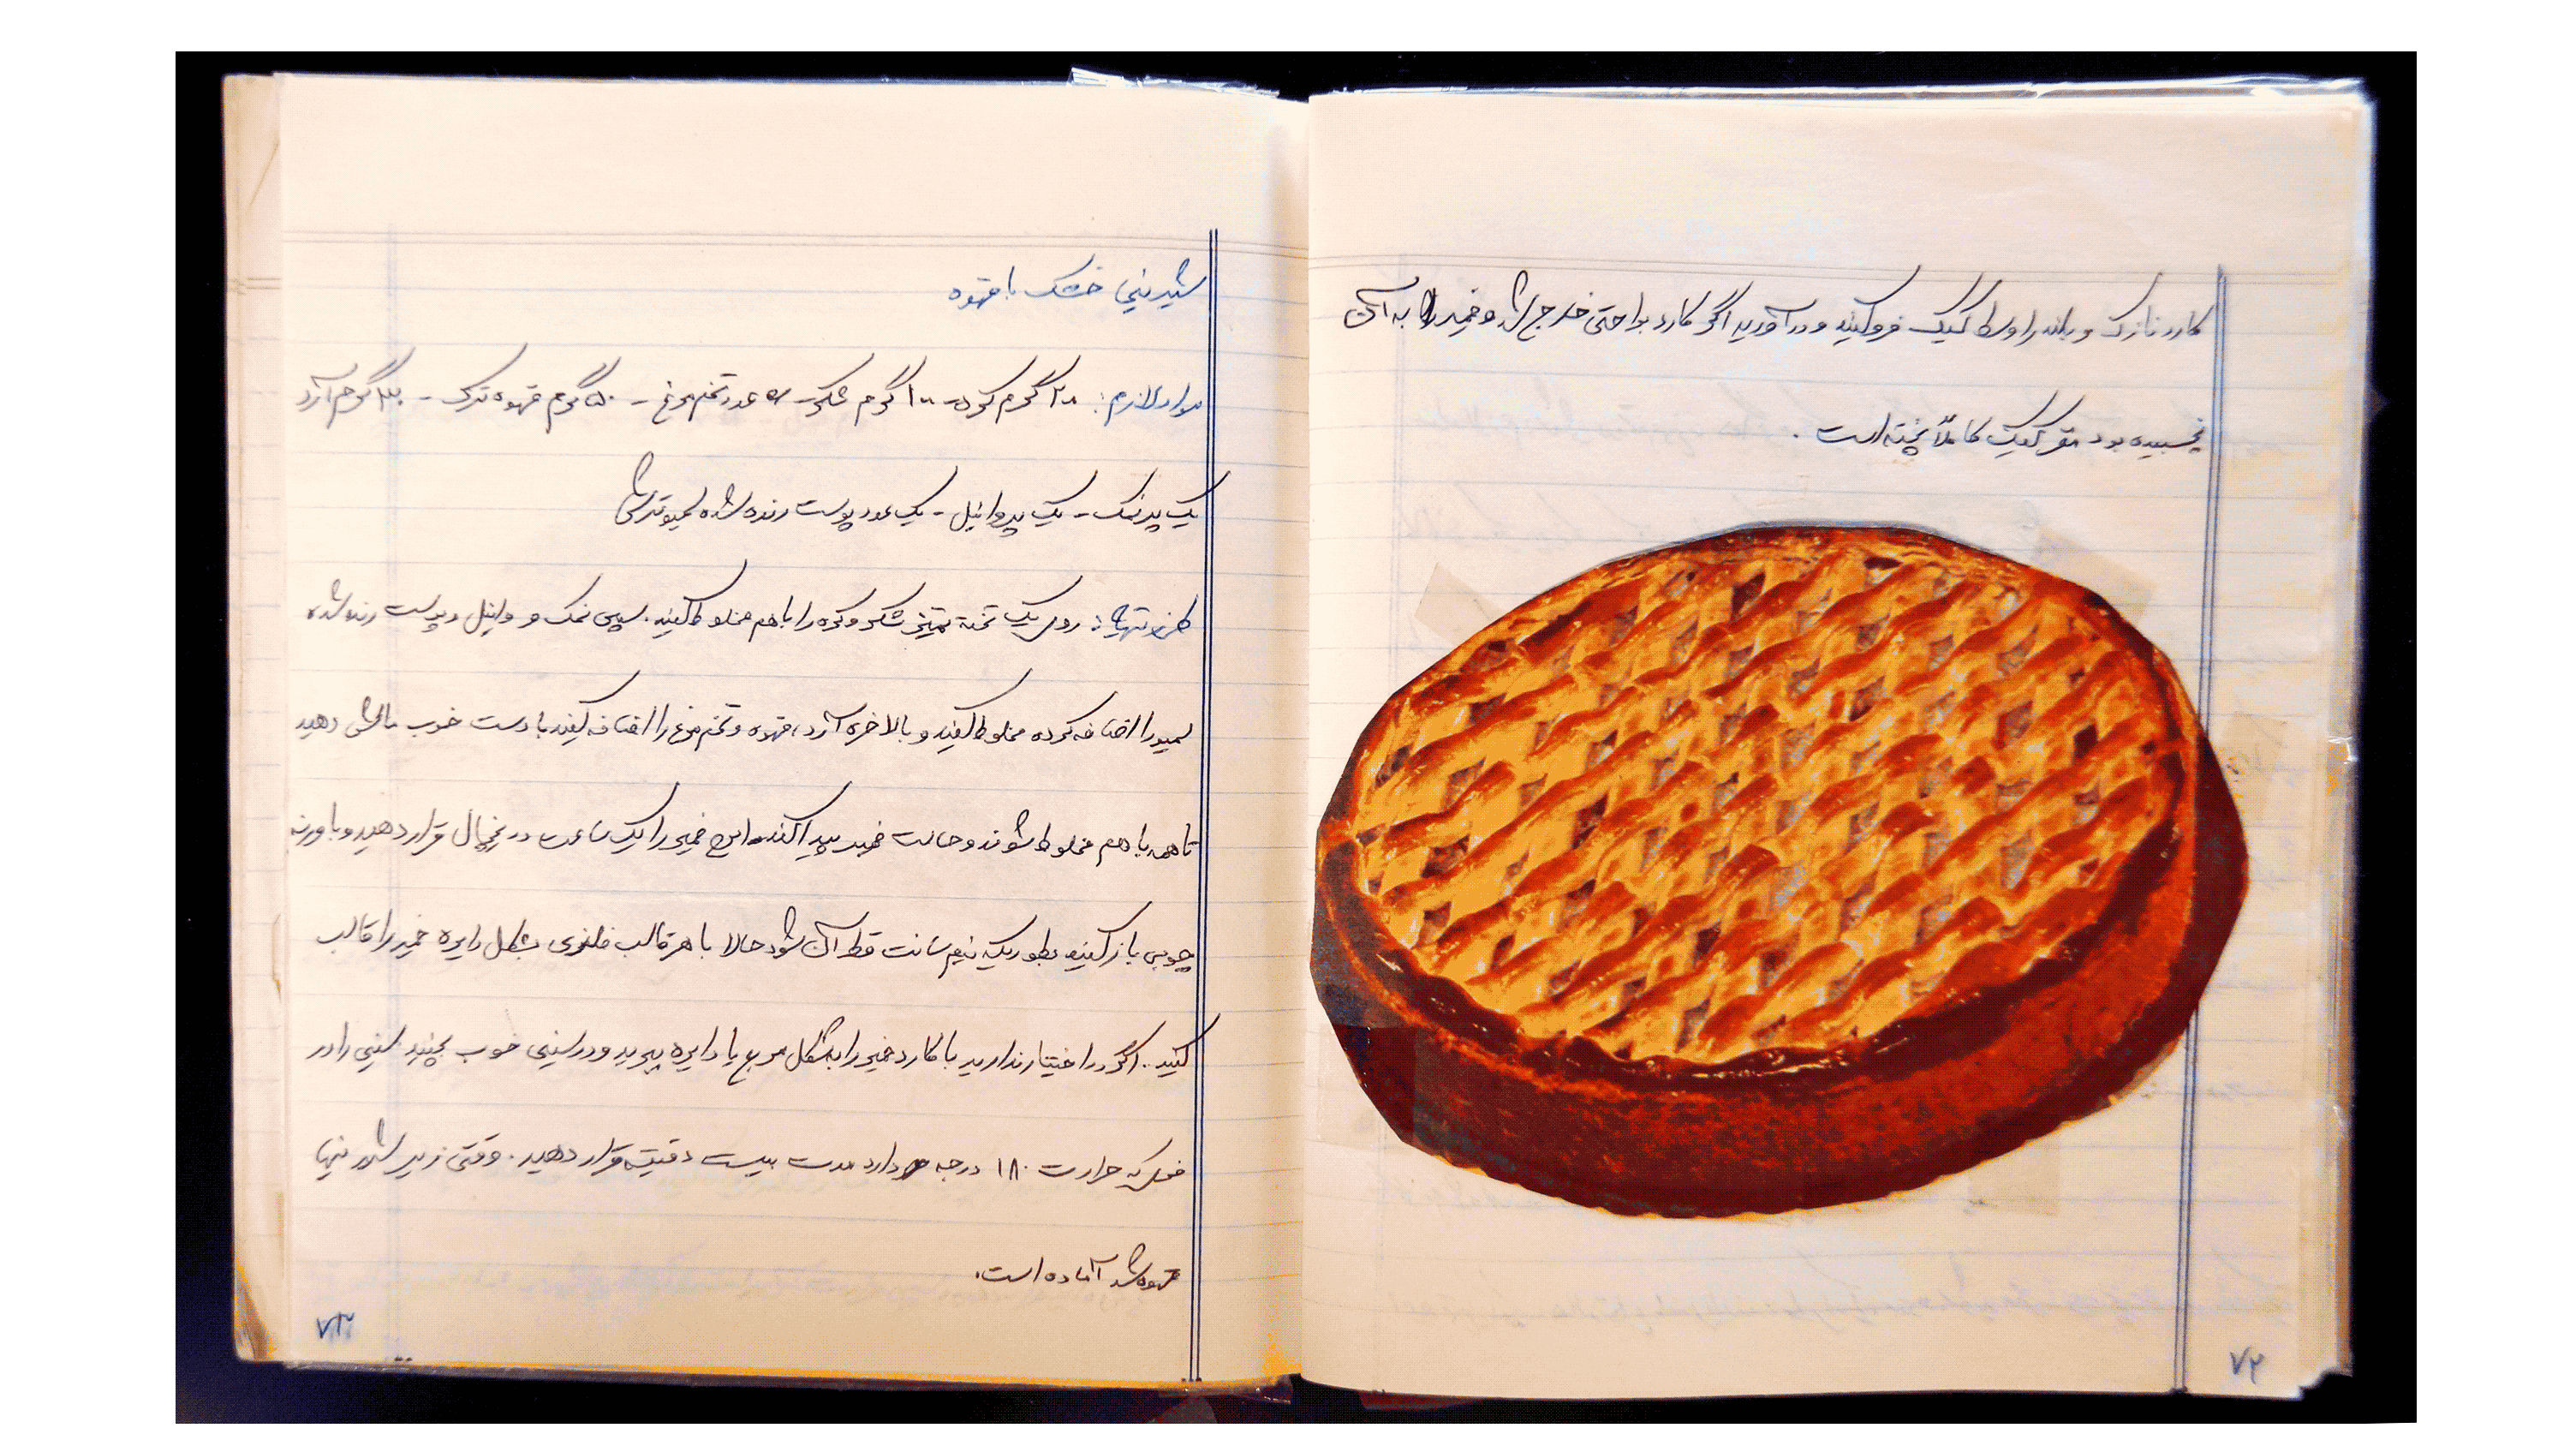 کارد نازک و بلند را وسط کیک فرو کنید و درآورید اگر کارد براحتی خارج شد و خمیر به آن
نچسبیده بود مغز کیک کاملاً پخته است.
۷۲
شیرینی خشک با قهوه
مواد لازم: گرم کره - ۱۰۰ گرم شکر - عدد تخم مرغ - ۵۰ گرم قهوه ترک - گرم آرد
یک پر نمک - یک پر وانیل - یک عدد پوست رنده شده لیمو ترش
طرز تهیه: روی یک تخته تمیز شکر و کره را با هم مخلوط کنید. سپس نمک و وانیل و پوست رنده شده
لیمو را اضافه کرده مخلوط کنید و بالاخره آرد، قهوه و تخم مرغ را اضافه کنید با دست خوب مالش دهید
تا همه با هم مخلوط شوند و حالت خمیر پیدا کند. این خمیر را یک ساعت در یخچال قرار دهید و با وردنه
چوبی باز کنید بطوریکه نیم سانت قطر آن شود حالا با هر قالب فلزی بشکل دایره خمیر را قالب
کنید. اگر در اختیار ندارید با کارد خمیر را بشکل مربع یا دایره ببرید و در سینی خوب بچینید سینی را در
فریکه حرارت ۱۸۰ درجه دارد مدت بیست دقیقه قرار دهید. وقتی زیر شیرینیها
قهوه شد آماده است.
۷۳